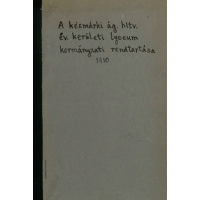 A késmárki ág. hitv.
Ev kerületi lyceum
kormányzati rendtartása
1910